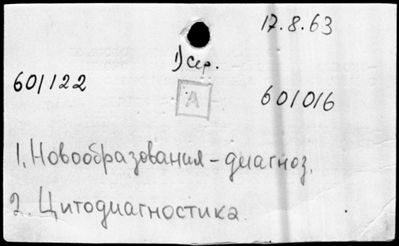 17.8.63
1) сер.
601122
А
601016
1. Новообразования - диагноз.
2. Цитодиагностика.